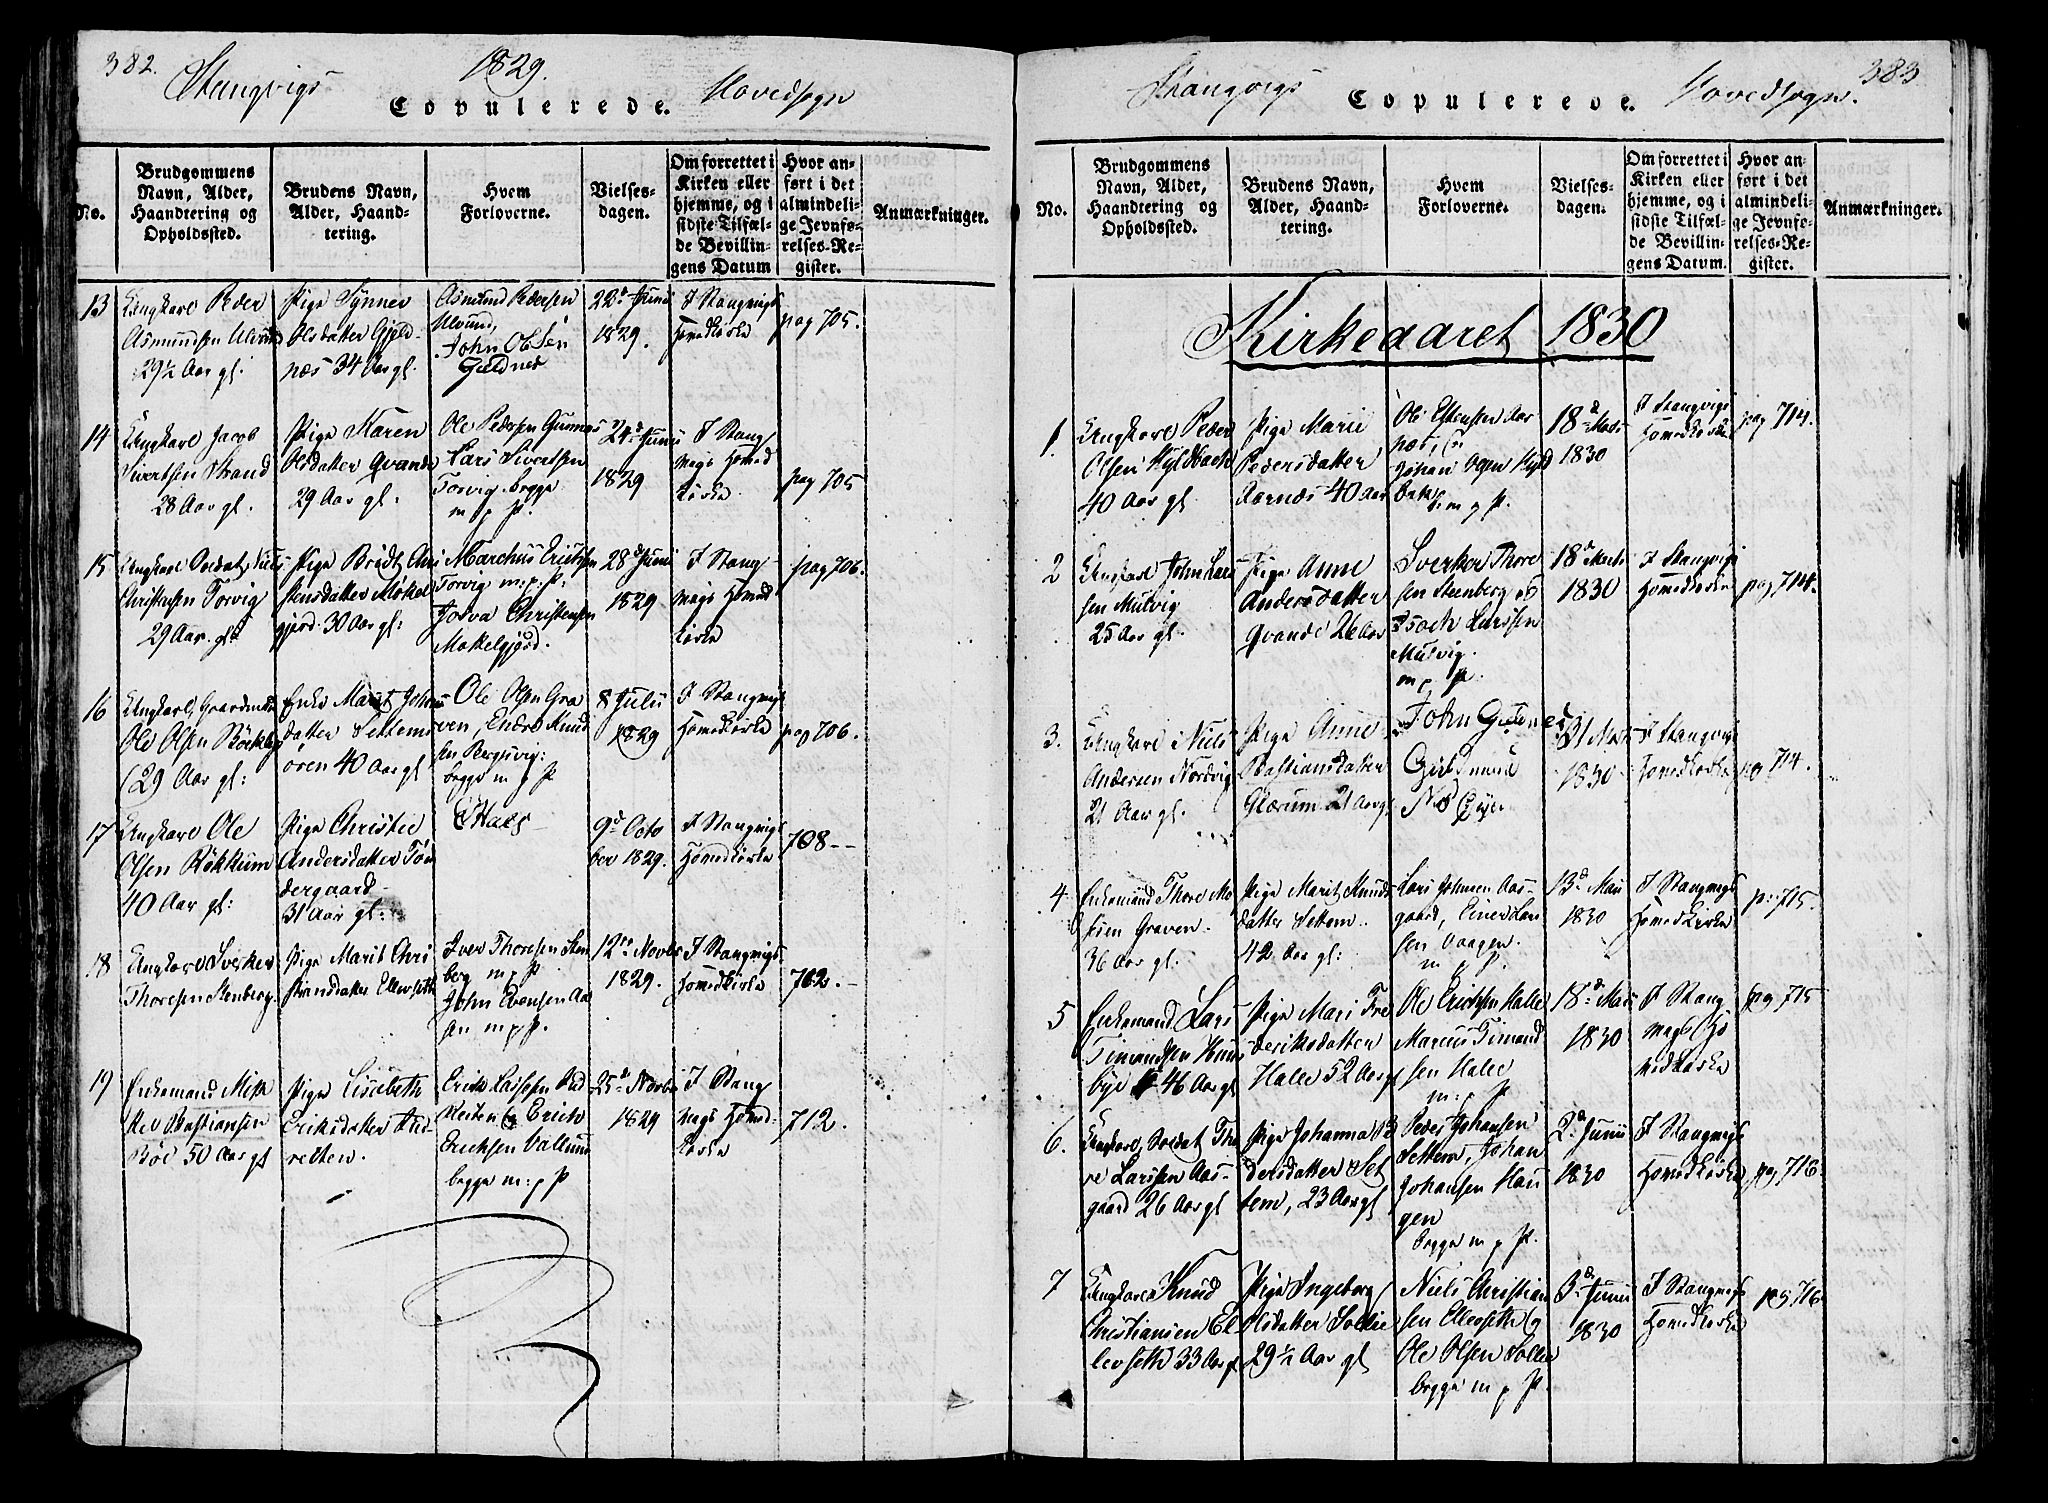 382.
Stangvigs
1829.
Copulerede.
Hovedsogn
No.
Brudgommens
Navn, Alder,
Haandtering og
Opholdssted.
Brudens Navn,
Alder, Haand-
tering.
Hvem
Forloverne.
Vielses-
dagen.
Om forrettet i
Kirken eller
hjemme, og i
sidste Tilfæl-
de Bevillin-
gens Datum
Hvor an-
ført i det
almindeli-
ge Jevnfø-
relses-Re-
gister.
Anmærkninger.
13
Ungkarl Peder
Asmundsen Ulvund
29½ Aar gl.
Pige Synnev
Olsdatter Gjeld-
næs 34 Aar gl.
Asmund Pedersen
Ulvund,
John Olsen
Geldnes
22de Junii
1829.
I Stangvigs
Hovedkirke
pag 705.
14
Ungkarl Jacob
Sivertsen Strand
28 Aar gl.
Pige Maren
Olsdatter Qvande
29 Aar gl:
Ole Pedersen Gunnes
Lars Sivertsen
Torvig begge
m p P.
24de Junii
1829
I Stang
vigs Hoved
kirke
pag 705
15
Ungkarl Soldat
Christensen Torvig
29 Aar gl:
Pige Brødt Chri
stensdatter Møkel
gjerd 30 Aar gl:
Marchus Erichsen
Torvig m:p:P.
Christensen
Mokelgjerd.
28de Junii
1829
I Stang
vigs Hoved
kirke
pag 706.
16
Ungkarl, Gaardmand
Ole Olsen Böklep
(29 Aar gl:
Enke Marit Johns
datter Settems
ören 40 Aar gl
Ole Olsen Gra
ven, Endre Knud
sen Bergsvig:
begge m p P
8 Julii
1829
I Stangvigs
Hovedkirke
pag 706.
17
Ungkarl Ole
Olsen Rökkum
40 Aar gl:
Pige Christie
Andersdatter Tön
dergaard
31 Aar gl:
9de Octo
ber 1829.
I Stangvigs
Hovedkirke
708--
18
Ungkarl Sverker
Thoresen Stenberg
Pige Marit Chri
stiansdatter Ellevseth
Iver Thoresen Sten
berg m p P.
John Evensen Aa
sen m p P.
12te Novbr
1829.
I Stangvigs
Hovedkirke
712.-
19
Enkemand Mik
kel Bastiansen
Böe 50 Aar gl
Pige Lisebeth
Eriksdatter Hal-
setten.
Erich Larssen Hal
seten og Erich
Erichsen Vallund
begge m:p P
25de Novbr
1829
I Stang
vigs Hoved-
kirke
712.
383
Stangvigs
Copulerede.
Hovedsogn.
No.
Brudgommens
Navn, Alder,
Haandtering og
Opholdssted.
Brudens Navn,
Alder, Haand-
tering.
Hvem
Forloverne.
Vielses-
dagen.
Om forrettet i
Kirken eller
hjemme, og i
sidste Tilfæl-
de Bevillin-
gens Datum.
Hvor an-
ført i det
almindeli-
ge Jevnfø-
relses-Re-
gister.
Anmærkninger.
Kirkeaaret 1830
1.
Ungkarl Peder
Olsen Hyldbach
40 Aar gl.
Pige Marie
Pedersdatter
Aarnæs 40 Aar
Ole Estensen Aar
næs, og
Johan Hyld
bak
b. m p P.
18de Marts
1830
I Stangvigs
Hovedkirke
pag 714.
2
Ungkarl John Lars
sen Mulvig
25 Aar gl.
Pige Anne
Andersdatter
Qvande 26 Aar
Sverker Thore
sen Steenberg og
Isach Larssen
Mulvig.
m p P.
18de Marts
1830
I Stangvigs
Hovedkirke
pag 714.
3.
Ungkarl Niels
Andersen Nordvig
21 Aar gl.
Pige Anne
Bastiansdatter
Glærum 21 Aar gl
John Geldnes
31 Marts
1830
I Stangvigs
Hovedkirke
pag 714.
4
Enkemand Thore Mo
sen Graven
36 Aar gl.
Pige Marit Knuds
datter Settem
42 Aar gl:
Lars Johnsen Aas-
gaard, Einer Lars
sen Vaagen.
m p P.
13de Maii
1830
I Stangvigs
Hovedkirke
p. 715.
5
Enkemand Lars
Timandsen Huus
bye 46 Aar gl
Pige Mari Fre
deriksdatter
Halle 52 Aar gl
Ole Erichsen Halle
Marcus Timand
sen Halle
m: p P
18de Maii
1830
I Stang
vigs Ho
vedkirke
pag 715
6.
Ungkarl, Soldat Tho
re Larssen Aas-
gaard 26 Aar gl
Pige Johanna Pe
dersdatter Set
tem, 23 Aar gl
Peder Johansen
Settem, Johan
Johansen Hau
gen
begge m p P.
2de Junii
1830
I Stangvigs
Hovedkirke
pag 716.
7
Ungkarl Knud
Christiansen El
levseth 33 Aar gl
Pige Ingeborg
Olsdatter Sollie
29½ Aar gl
Niels Christian
sen Ellevseth og
Ole Olsen Sollie
begge m p P.
3de Junii
1830
I Stangvigs
Hovedkirke
pag 716